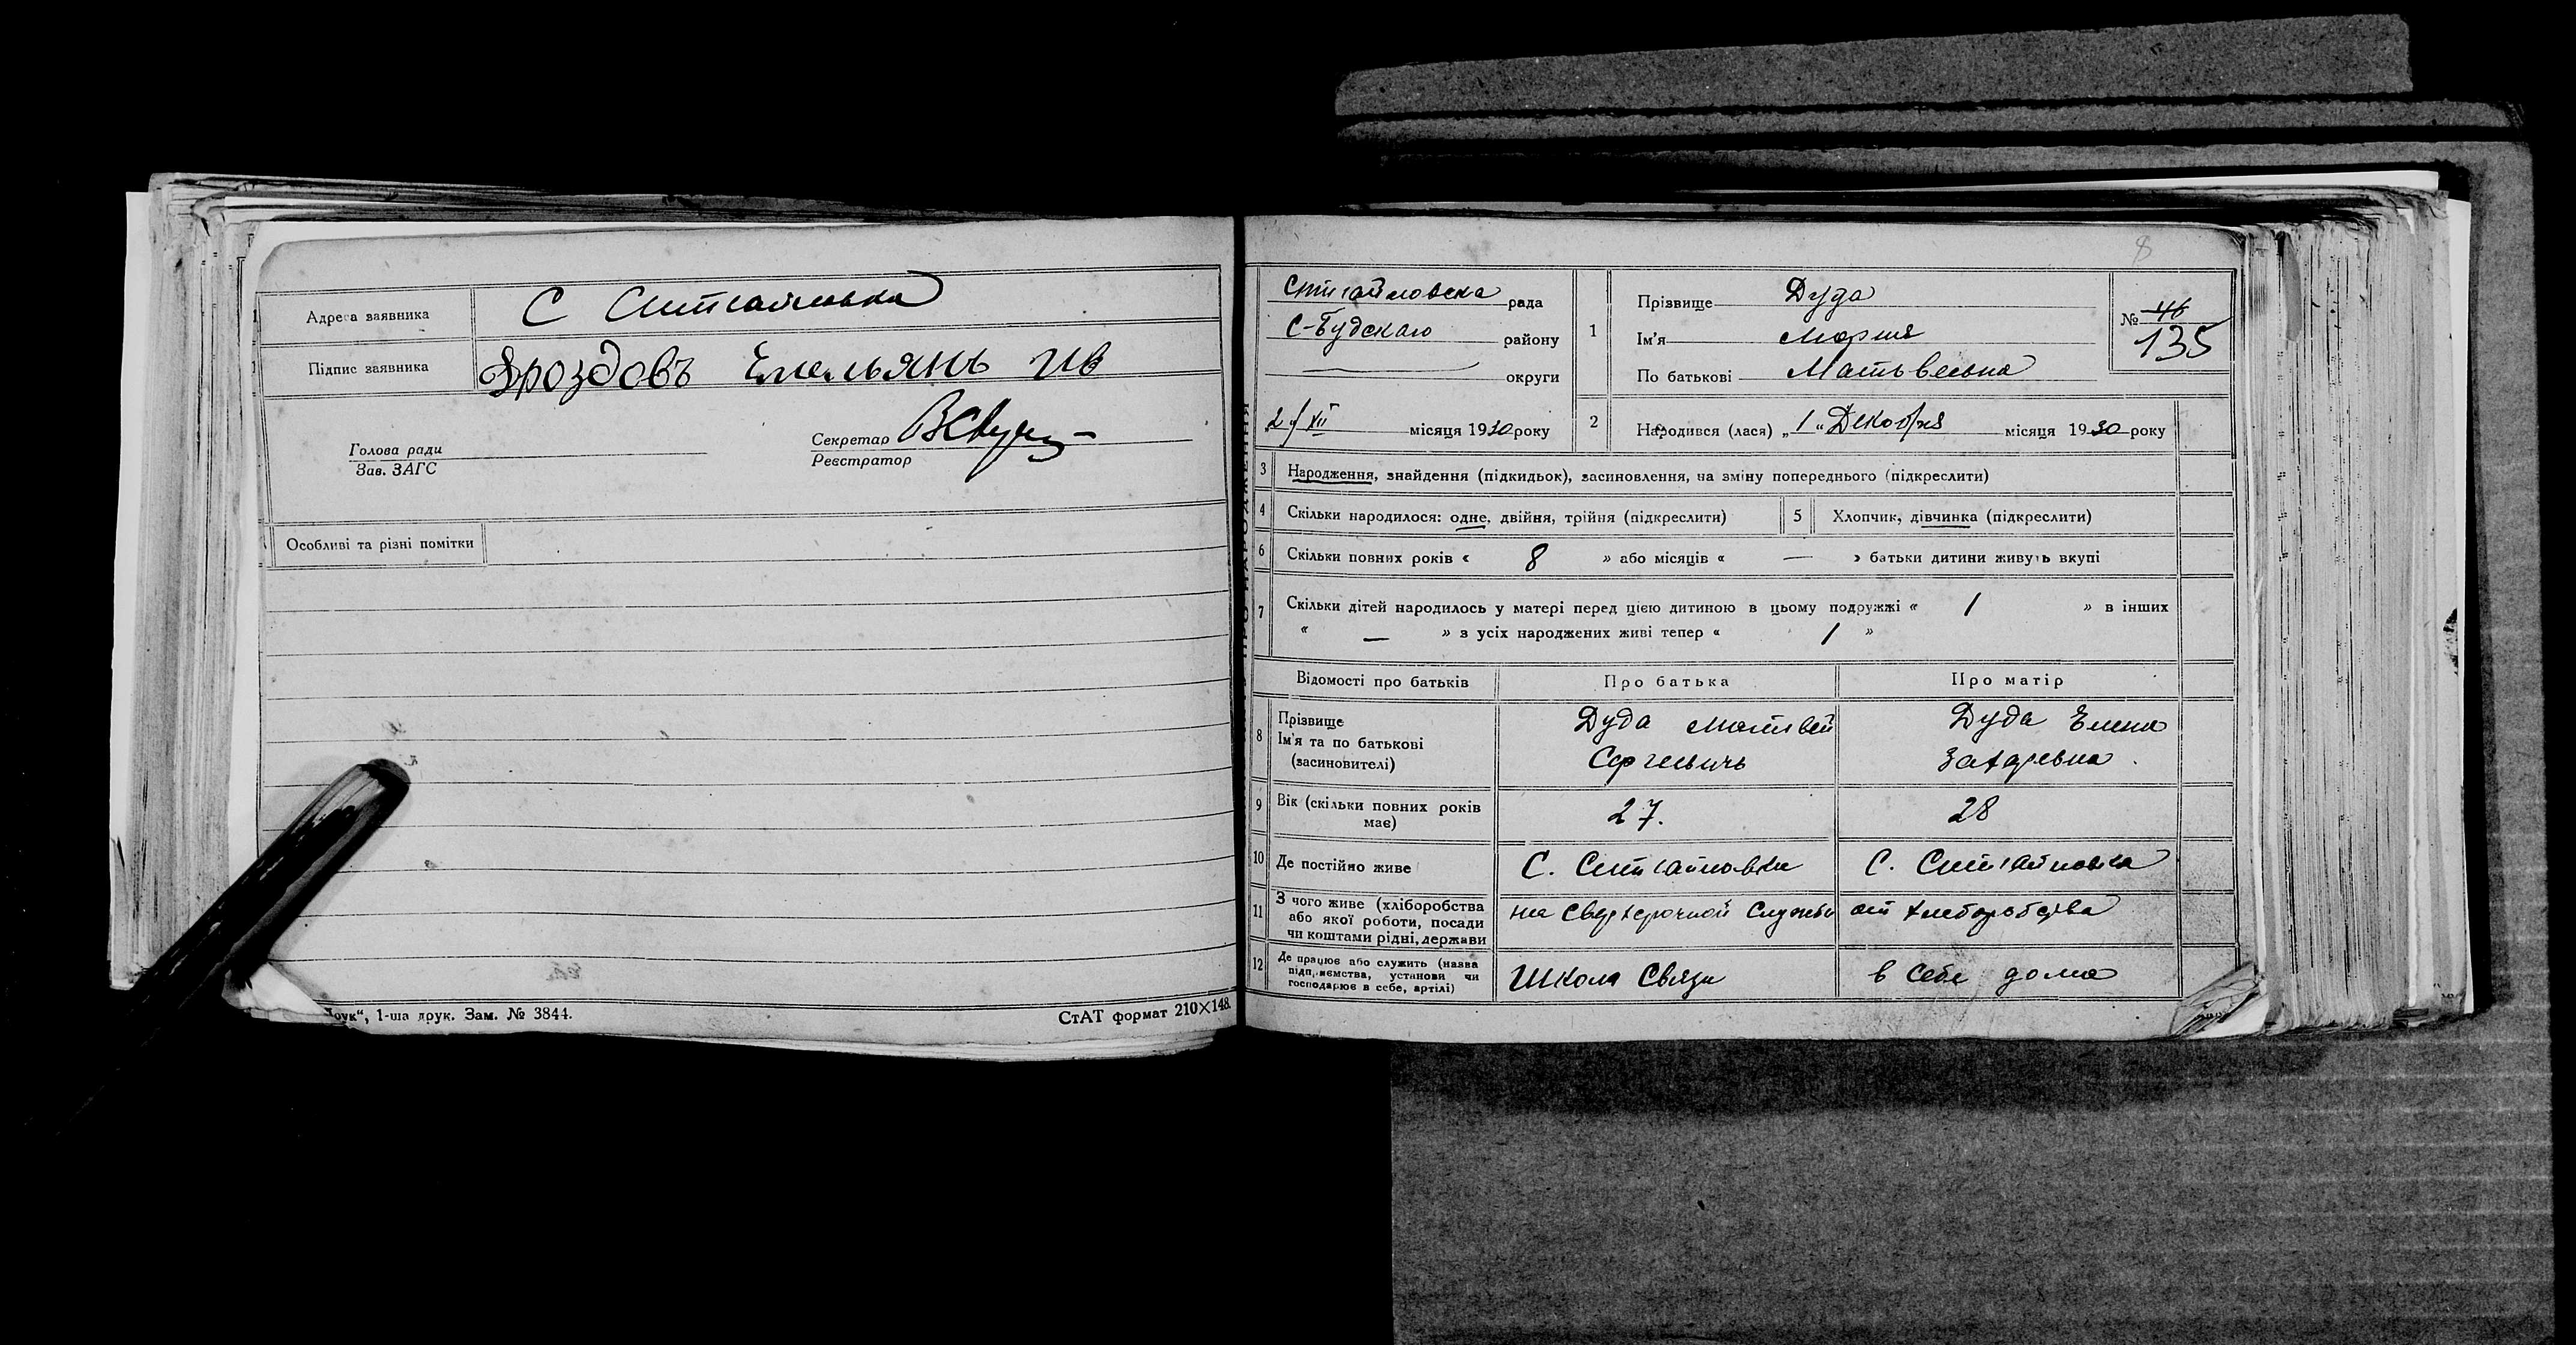 Адреса заявника
Підпис заявника Дроздовъ Емельянъ Ив
Голова ради
Зав. ЗАГС
Секретар
Реєстратор
Особливі та різні помітки
друк“, 1-ша друк. Зам. № 3844.
СтАТ формат 210×148.
8
рада
С-Будскаго району
округи
2/XII місяця 1930 року
1
Прізвище Дуда
Ім'я Мария
По батькові Матьвеевна
№ 46
135
2 Народився (лася) „1“ Декабря місяця 1930 року
3 Народження, знайдення (підкидьок), засиновлення, на зміну попереднього (підкреслити)
4 Скільки народилося: одне, двійня, трійня (підкреслити) 5 Хлопчик, дівчинка (підкреслити)
6 Скільки повних років « 8 » або місяців « — » батьки дитини живуть вкупі
7 Скільки дітей народилось у матері перед цією дитиною в цьому подружжі « 1 » в інших
« — » з усіх народжених живі тепер « 1 »
Відомості про батьків Про батька Про матір
8 Прізвище
Ім'я та по батькові
(засиновителі)
Дуда Матвей
Сергеевичь
Дуда Елена
Захаревна
9 Вік (скільки повних років
має)
27. 28
10 Де постійно живе
11 З чого живе (хліборобства
або якої роботи, посади
чи коштами рідні, держави
на Службе
от хлеборобства
12 Де працює або служить (назва
підприємства, установи чи
господарює в себе, артілі)
Школа Связи
в себе дома